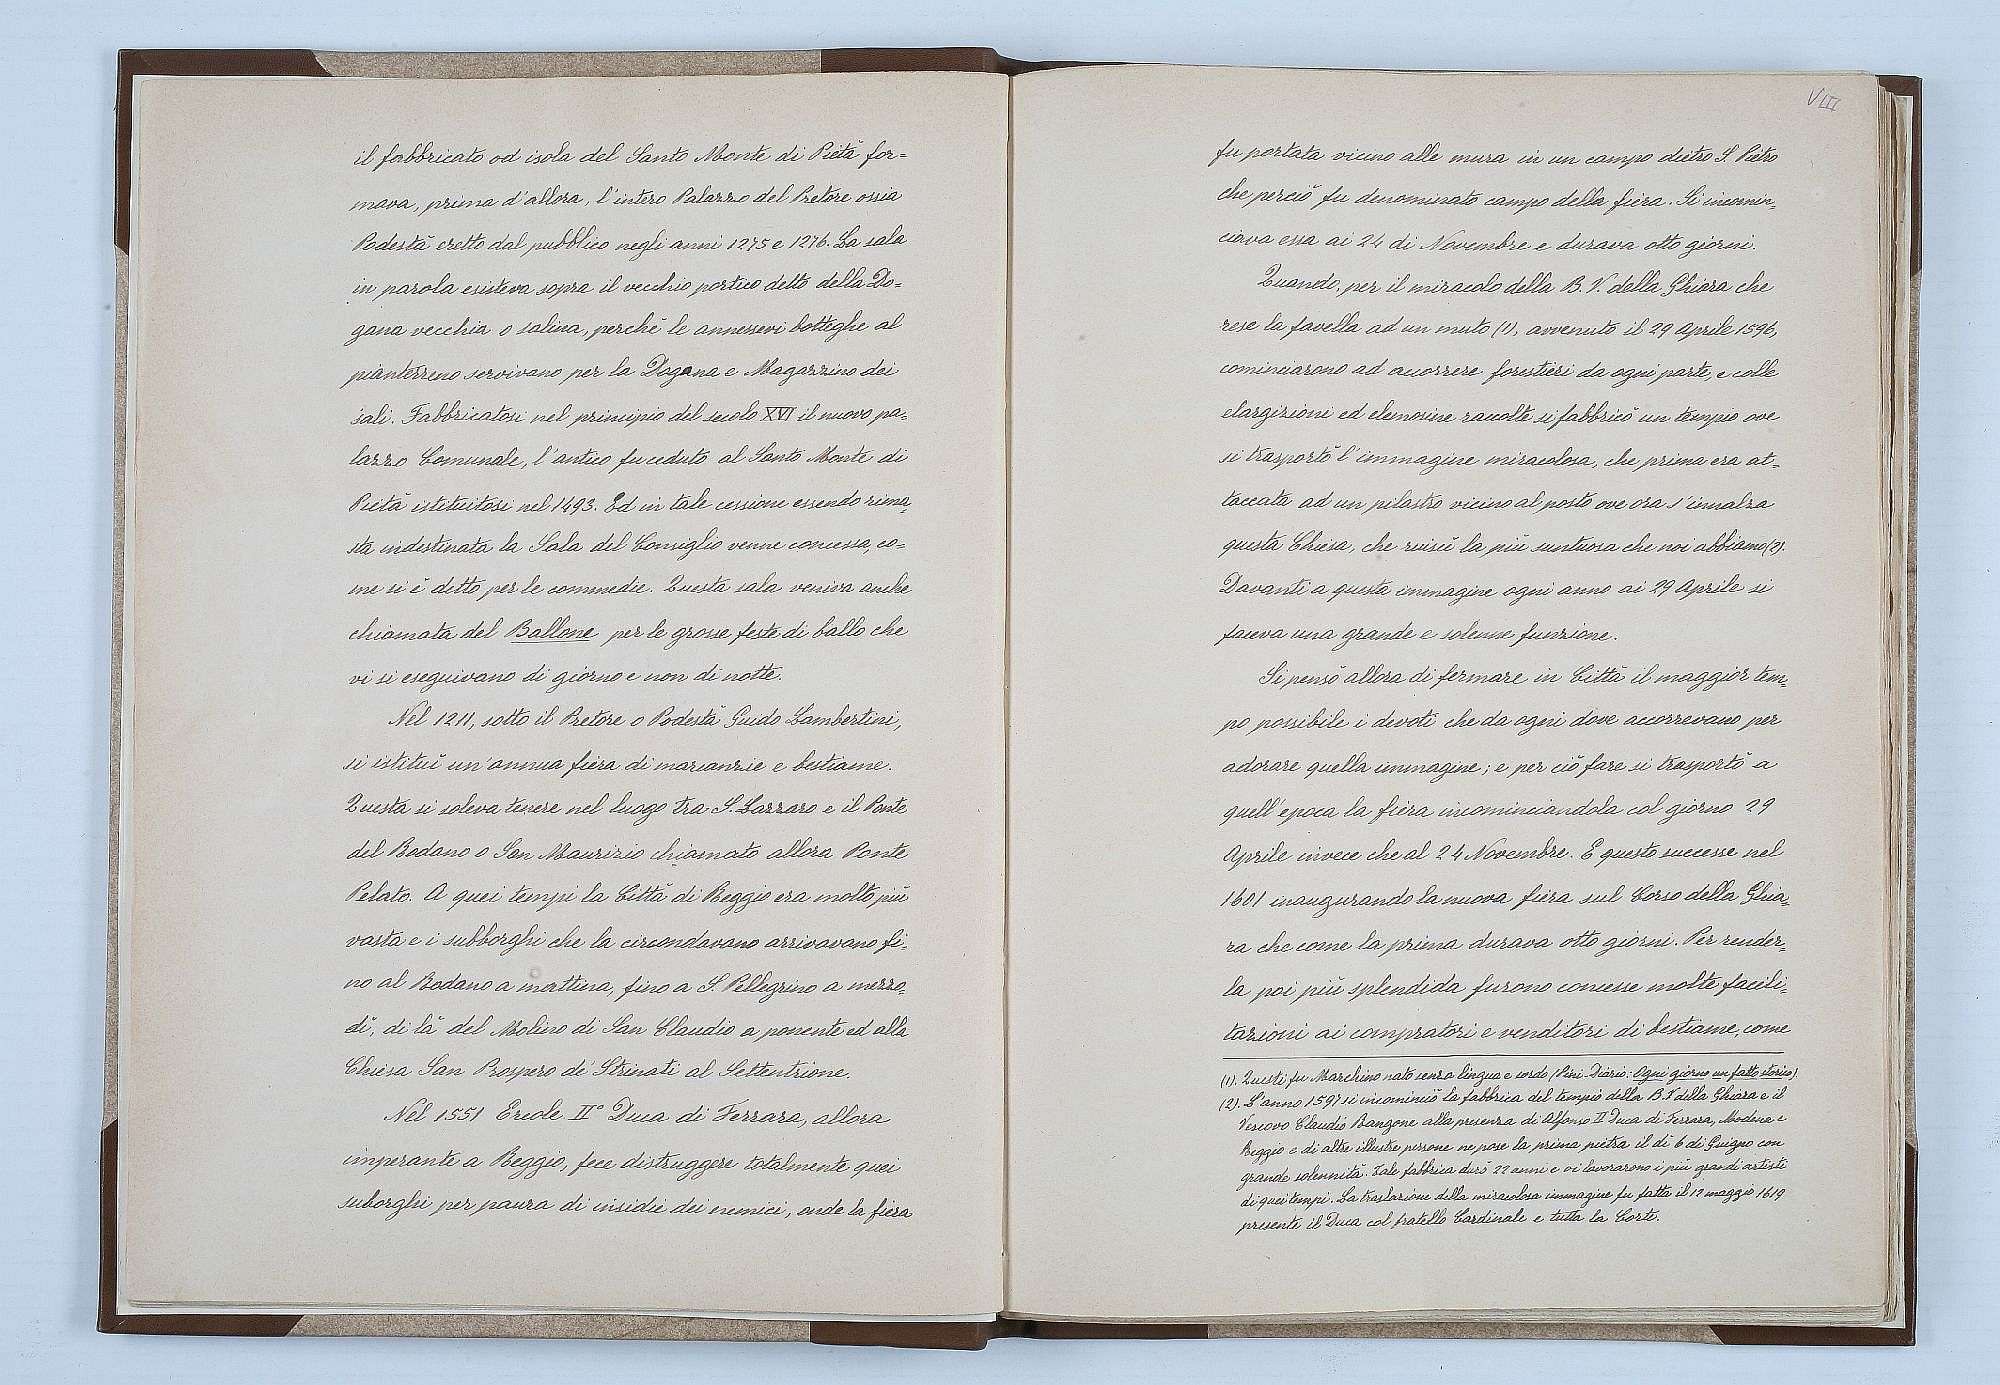 il fabbricato od isola del Santo Monte di Pietà for=
mava, prima d'allora, l'intero Palazzo del Pretore ossia
Podestà eretto dal pubblico negli anni 1275 e 1276. La sala
in parola esisteva sopra il vecchio portico detto della Do=
gana vecchia o salina, perchè le annessevi botteghe al
pianterreno servivano per la Dogana e Magazzino dei
sali. Fabbricatosi nel principio del secolo XVI il nuovo pa=
lazzo Comunale, l'antico fu ceduto al Santo Monte di
Pietà istituitosi nel 1493. Ed in tale cessione essendo rima=
sta indestinata la Sala del Consiglio venne concessa, co=
me si è detto per le commedie. Questa sala veniva anche
chiamata del Ballone per le grosse feste di ballo che
vi si eseguivano di giorno e non di notte.
Nel 1211, sotto il Pretore o Podestà Guido Lambertini,
si istituì un'annua fiera di marzanzie e bestiame.
Questa si soleva tenere nel luogo tra S. Lazzaro e il Ponte
del Rodano o San Maurizio chiamato allora Ponte
Pelato. A quei tempi la Città di Reggio era molto più
vasta e i subborghi che la circondavano arrivavano fi=
no al Rodano a mattina, fino a S. Pellegrino a mezzo=
dì, di là del Molino di San Claudio a ponente ed alla
Chiesa San Prospero de' Strinati al Settentrione.
Nel 1551 Ercole II° Duca di Ferrara, allora
imperante a Reggio, fece distruggere totalmente quei
suborghi per paura di insidie dei nemici, onde la fiera
VIII
fu portata vicino alle mura in un campo dietro S. Pietro
che perciò fu denominato campo della fiera. Si incomin=
ciava essa ai 24 di Novembre e durava otto giorni.
Quando, per il miracolo della B. V. della Ghiara che
rese la favella ad un muto (1), avvenuto il 29 Aprile 1596,
cominciarono ad accorrere forestieri da ogni parte, e colle
elargizioni ed elemosine raccolte si fabbricò un tempio ove
si trasportò l'immagine miracolosa, che prima era at=
taccata ad un pilastro vicino al posto ove ora s'innalza
questa Chiesa, che riuscì la più suntuosa che noi abbiamo (2).
Davanti a questa immagine ogni anno ai 29 Aprile si
faceva una grande e solenne funzione.
Si pensò allora di fermare in Città il maggior tem=
po possibile i devoti che da ogni dove accorrevano per
adorare quella immagine; e per ciò fare si trasportò a
quell'epoca la fiera incominciandola col giorno 29
Aprile invece che al 24 Novembre. E questo successe nel
1601 inaugurando la nuova fiera sul Corso della Ghia=
ra che come la prima durava otto giorni. Per render=
la poi più splendida furono concesse molte facili=
tazioni ai compratori e venditori di bestiame, come
(1). Questi fu Marchino nato senza lingua e sordo (Pini - Diario: Ogni giorno un fatto storico)
(2). L'anno 1597 si incominciò la fabbrica del tempio della B. V. della Ghiara e il
Vescovo Claudio Rangone alla presenza di Alfonso II Duca di Ferrara, Modena e
Reggio e di altre illustre persone ne pose la prima pietra il dì 6 di Giugno con
grande solennità. Tale fabbrica durò 22 anni e vi lavorarono i più grandi artisti
di quei tempi. La traslazione della miracolosa immagine fu fatta il 12 maggio 1619
presente il Duca col fratello Cardinale e tutta la Corte.